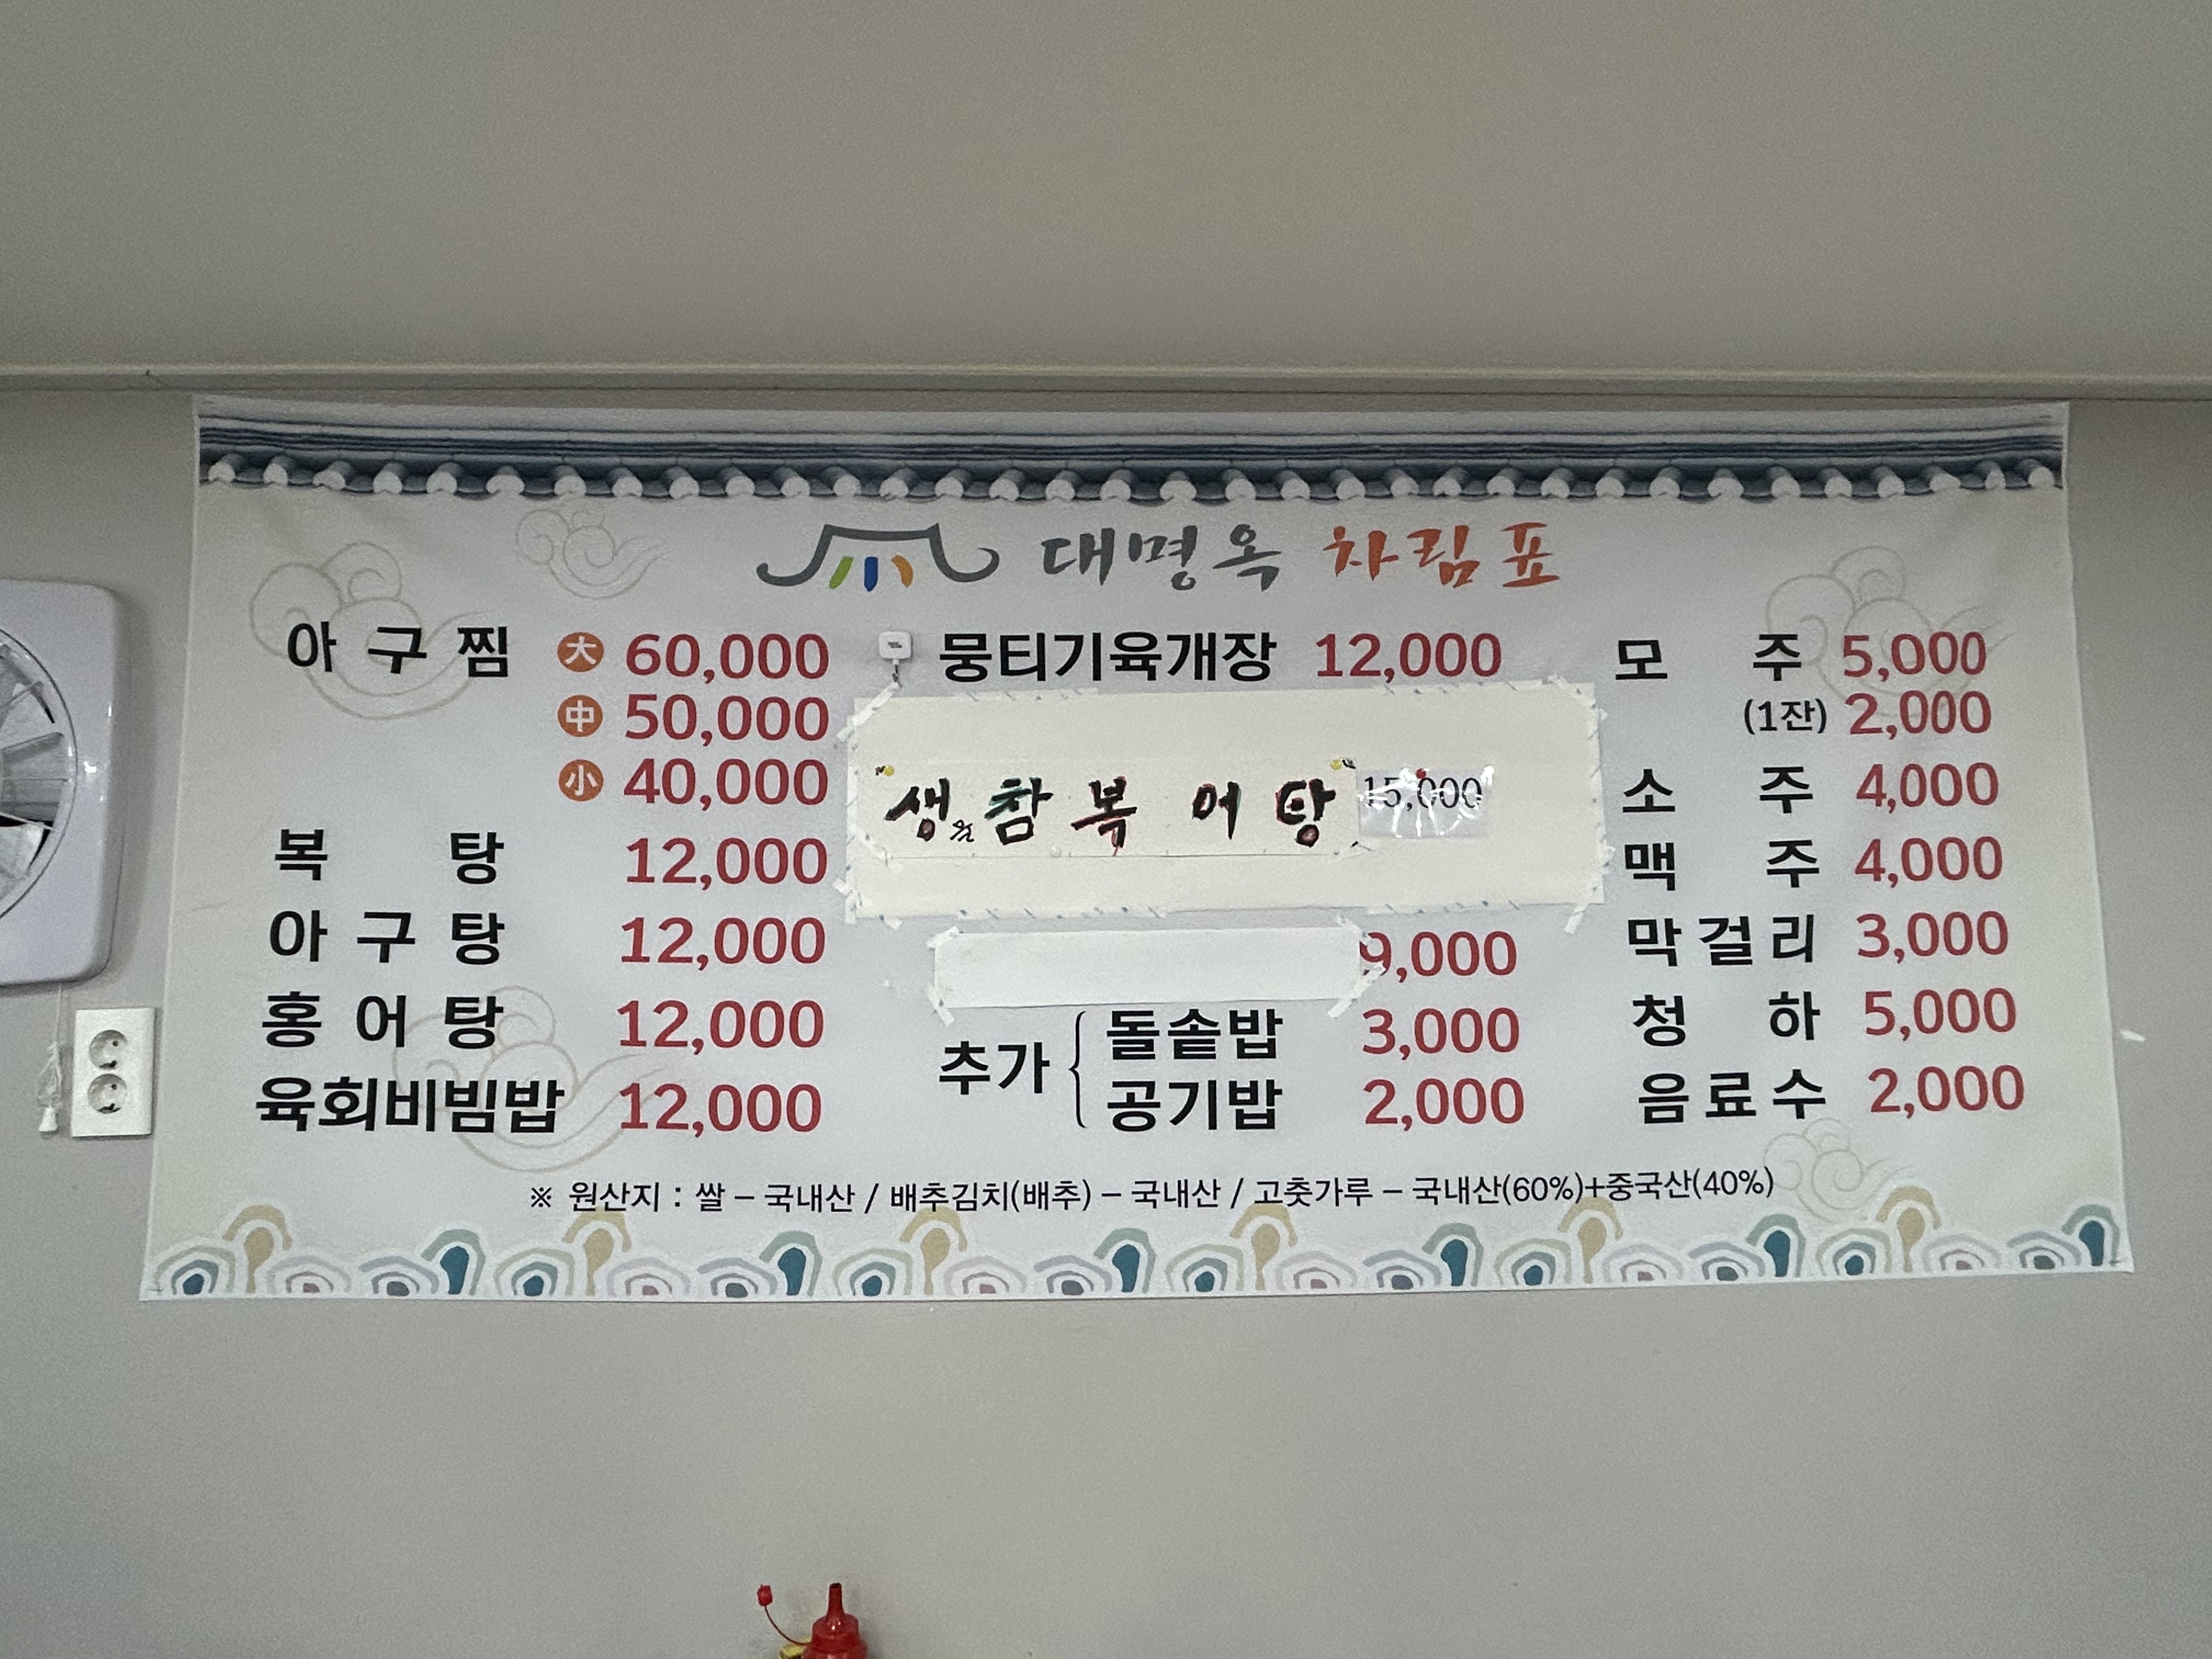 대명옥 차림표
아구찜 大 60,000
中 50,000
小 40,000
복탕 12,000
아구탕 12,000
홍어탕 12,000
육회비빔밥 12,000
뭉티기육개장 12,000
생참복어탕 15,000
9,000
추가 돌솥밥 3,000
공기밥 2,000
모주 5,000
(1잔) 2,000
소주 4,000
맥주 4,000
막걸리 3,000
청하 5,000
음료수 2,000
※ 원산지 : 쌀 – 국내산 / 배추김치(배추) – 국내산 / 고춧가루 – 국내산(60%)+중국산(40%)